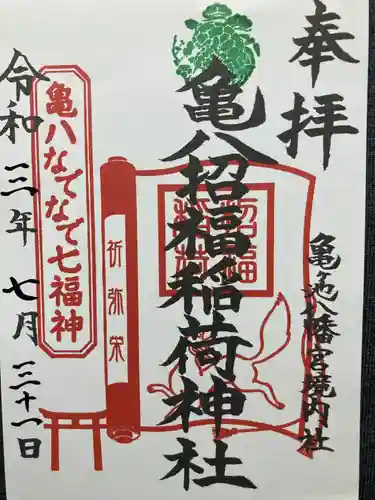 奉拝
亀ヶ池八幡宮境内社
亀八招福稲荷神社
招福稲荷
祈弥栄
亀八なでなで七福神
令和三年七月三十一日